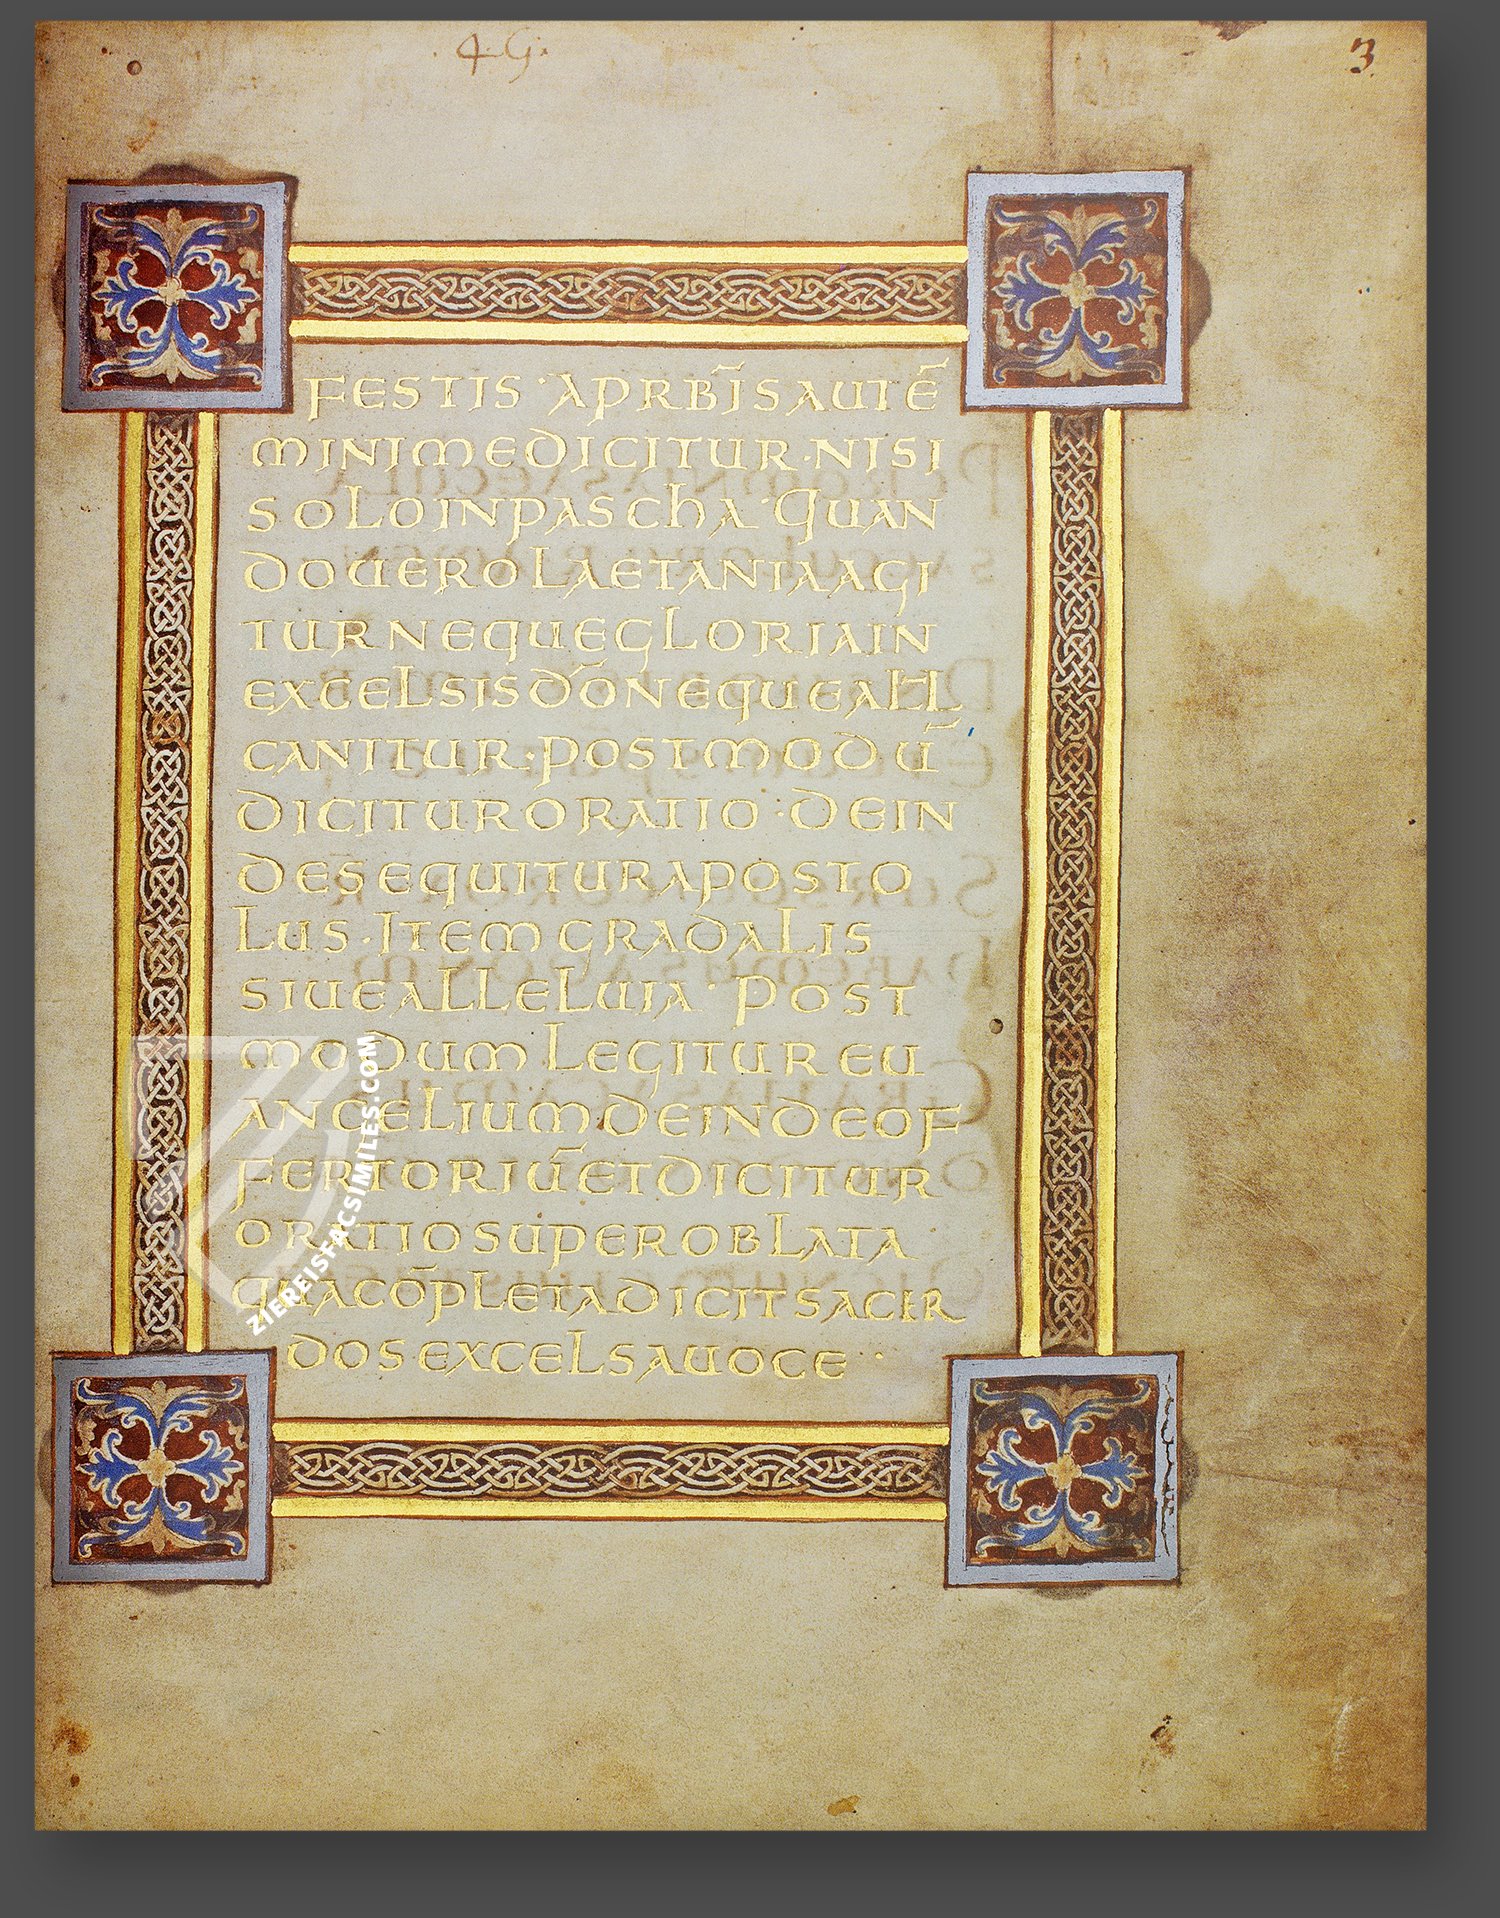 ·4·G·
3
FESTIS·APRBĪSAUTĒ
MINIMEDICITUR·NISI
SOLOINPASCHA·QUAN
DOUEROLAETANIAAGI
TURNEQUEGLORIAIN
EXCELSISDŌNEQUEALL
CANITUR·POSTMODŪ
DICITURORATIO·DEIN
DESEQUITURAPOSTO
LUS·ITEMGRADALIS
SIUEALLELUIA·POST
MODUMLEGITUREU
ANGELIUMDEINDEOF
FERTORIŪETDICITUR
ORATIOSUPEROBLATA
QUACŌPLETADICITSACER
DOSEXCELSAUOCE··
ZIEREISFACSIMILES.COM